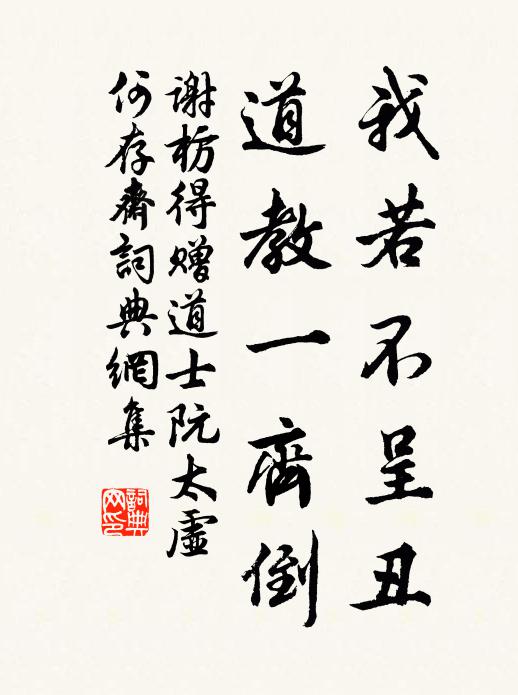 我若不呈丑
道教一齊倒
謝枋得贈道士阮太虛
何存齊詞典網集
詞典网印